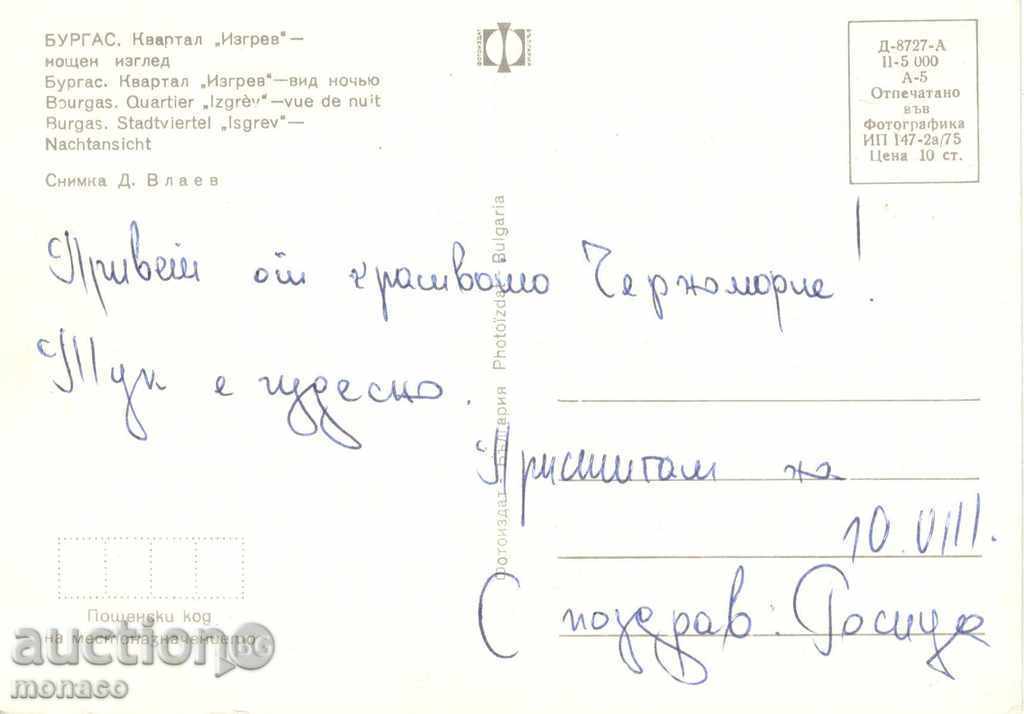 БУРГАС. Квартал „Изгрев“—
нощен изглед
Бургас. Квартал „Изгрев“—вид ночью
Bourgas. Quartier „Izgrèv“—vue de nuit
Burgas. Stadtviertel „Isgrev“—
Nachtansicht
Снимка Д. Влаев
ФОТОИЗДАТ
Д-8727-А
II-5 000
А-5
Отпечатано
във
Фотографика
ИП 147-2а/75
Цена 10 ст.
Фотоиздат - България Photoïzdat - Bulgaria
Привет от красивото Черноморие!
Тук е чудесно.
Пристигам на
10.VIII.
С поздрав: Росица
Пощенски код
на местоназначението
auction.BG
monaco